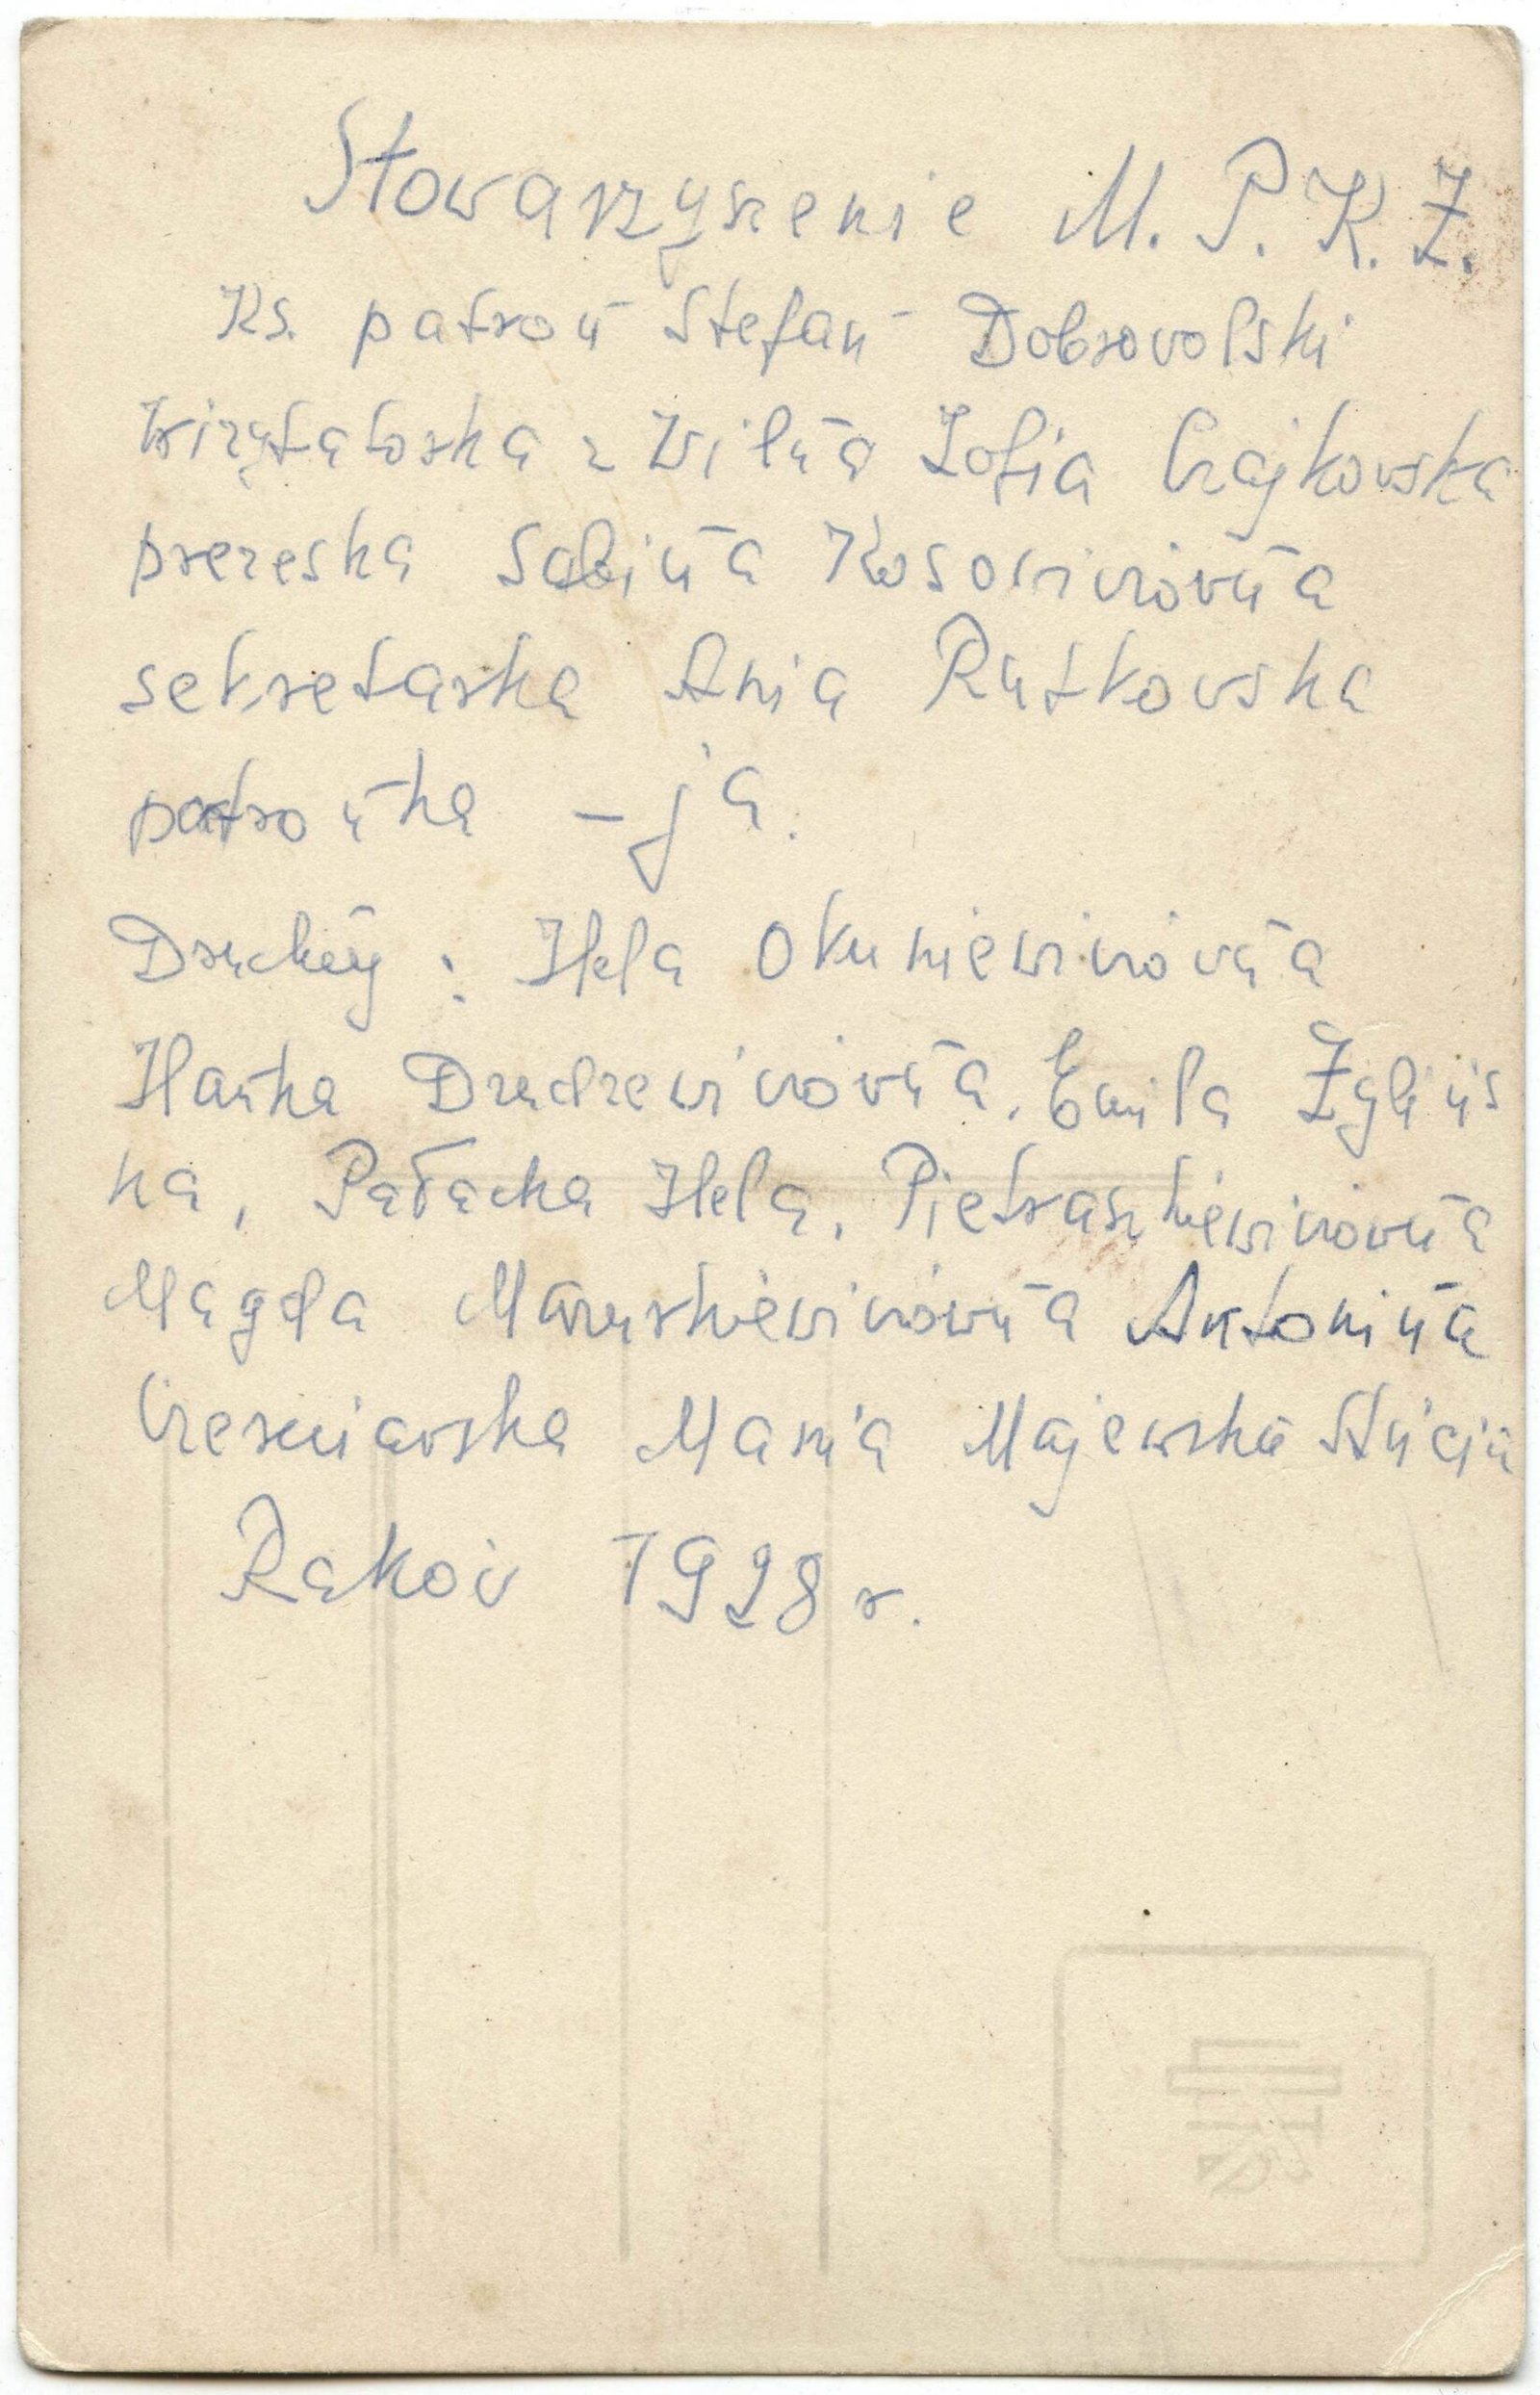 Stowarzyszenie M. P. K. Ż.
Ks. patron Stefan Dobrowolski
Wizytatorka z Wilna Zofia Czajkowska
prezeska Sabina Kosowiczówna
sekretarka Ania Rutkowska
patronka – ja.
Druchny : Hela Okuniewiczówna
Hanka Drucrewiczówna, Emila Żylińs
ka, Pałacka Hela, Pietraszkiewiczówna
Magda Maruszkiewiczówna Antonina
Czerniawska Mania Majewska
Raków 1928 r.